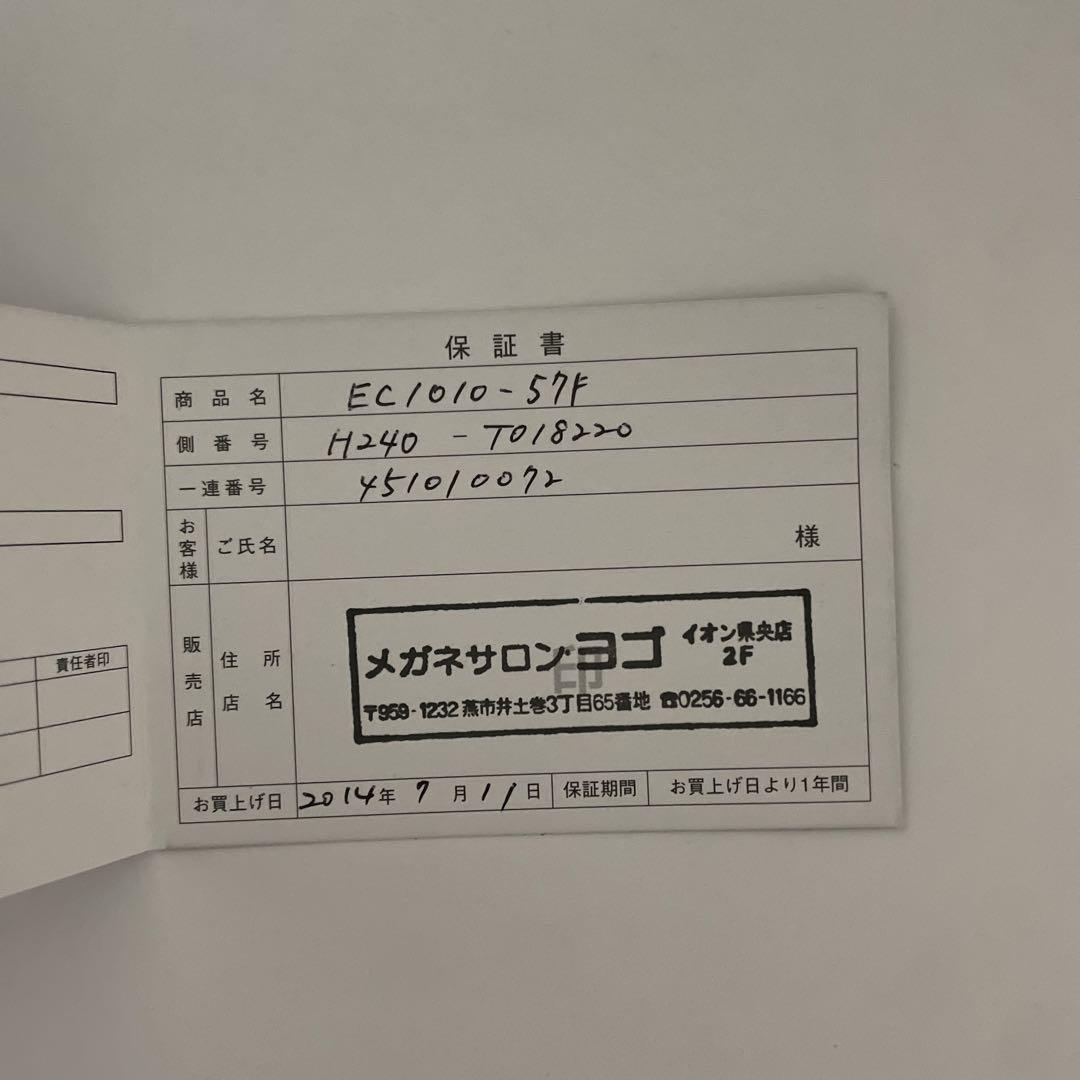 責任者印
保証書
商品名 EC1010-57F
側番号 H240 - T018220
一連番号 451010072
お客様 ご氏名 様
販売店 住所 店名
メガネサロン・ヨゴ イオン県央店 2F
印
〒959-1232 燕市井土巻3丁目65番地 ☎0256-66-1166
お買上げ日 2014年 7月11日 保証期間 お買上げ日より1年間